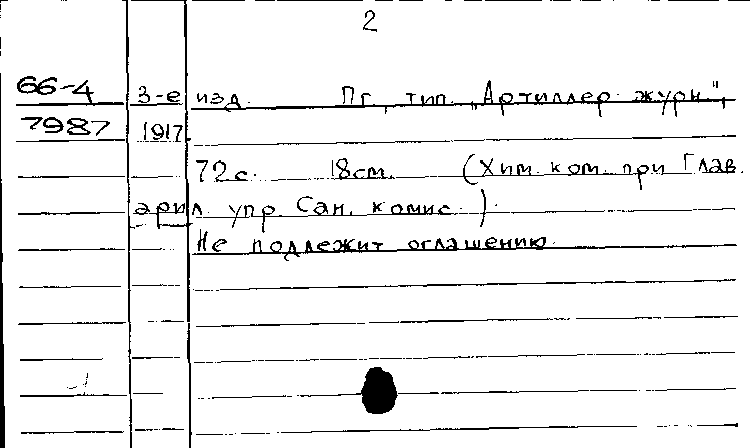 2
66-4 3-е изд. Пг, тип. „Артиллер. журн",
7987 1917.
72 с. 18 см. (Хим. ком. при Глав.
арил. упр. Сан. комис.).
Не подлежит оглашению.